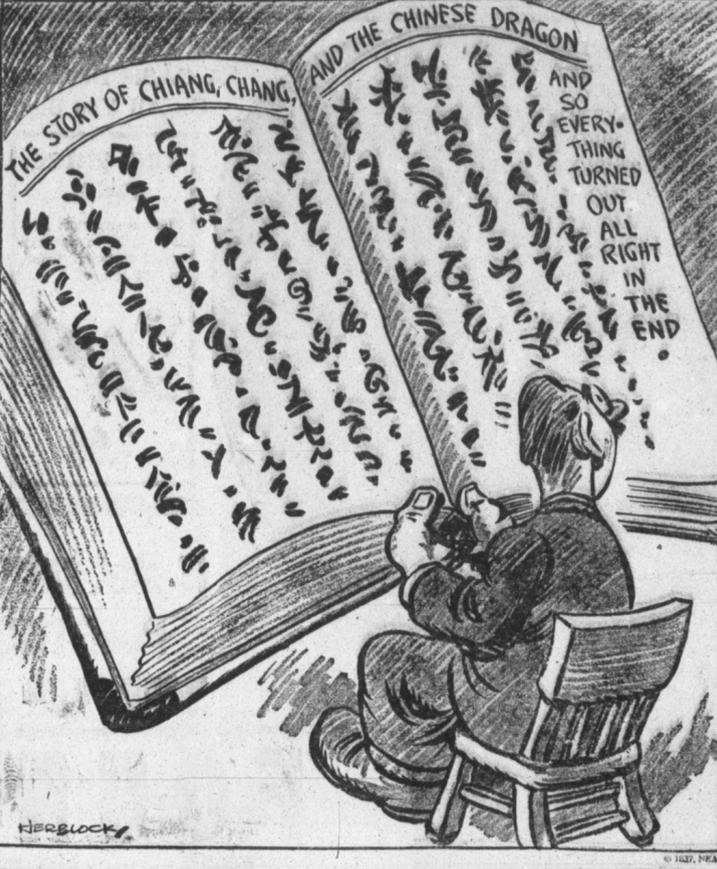 THE STORY OF CHIANG, CHANG,
AND THE CHINESE DRAGON
AND
SO
EVERY-
THING
TURNED
OUT
ALL
RIGHT
IN
THE
END.
HERBLOCK
© 1937, NEA